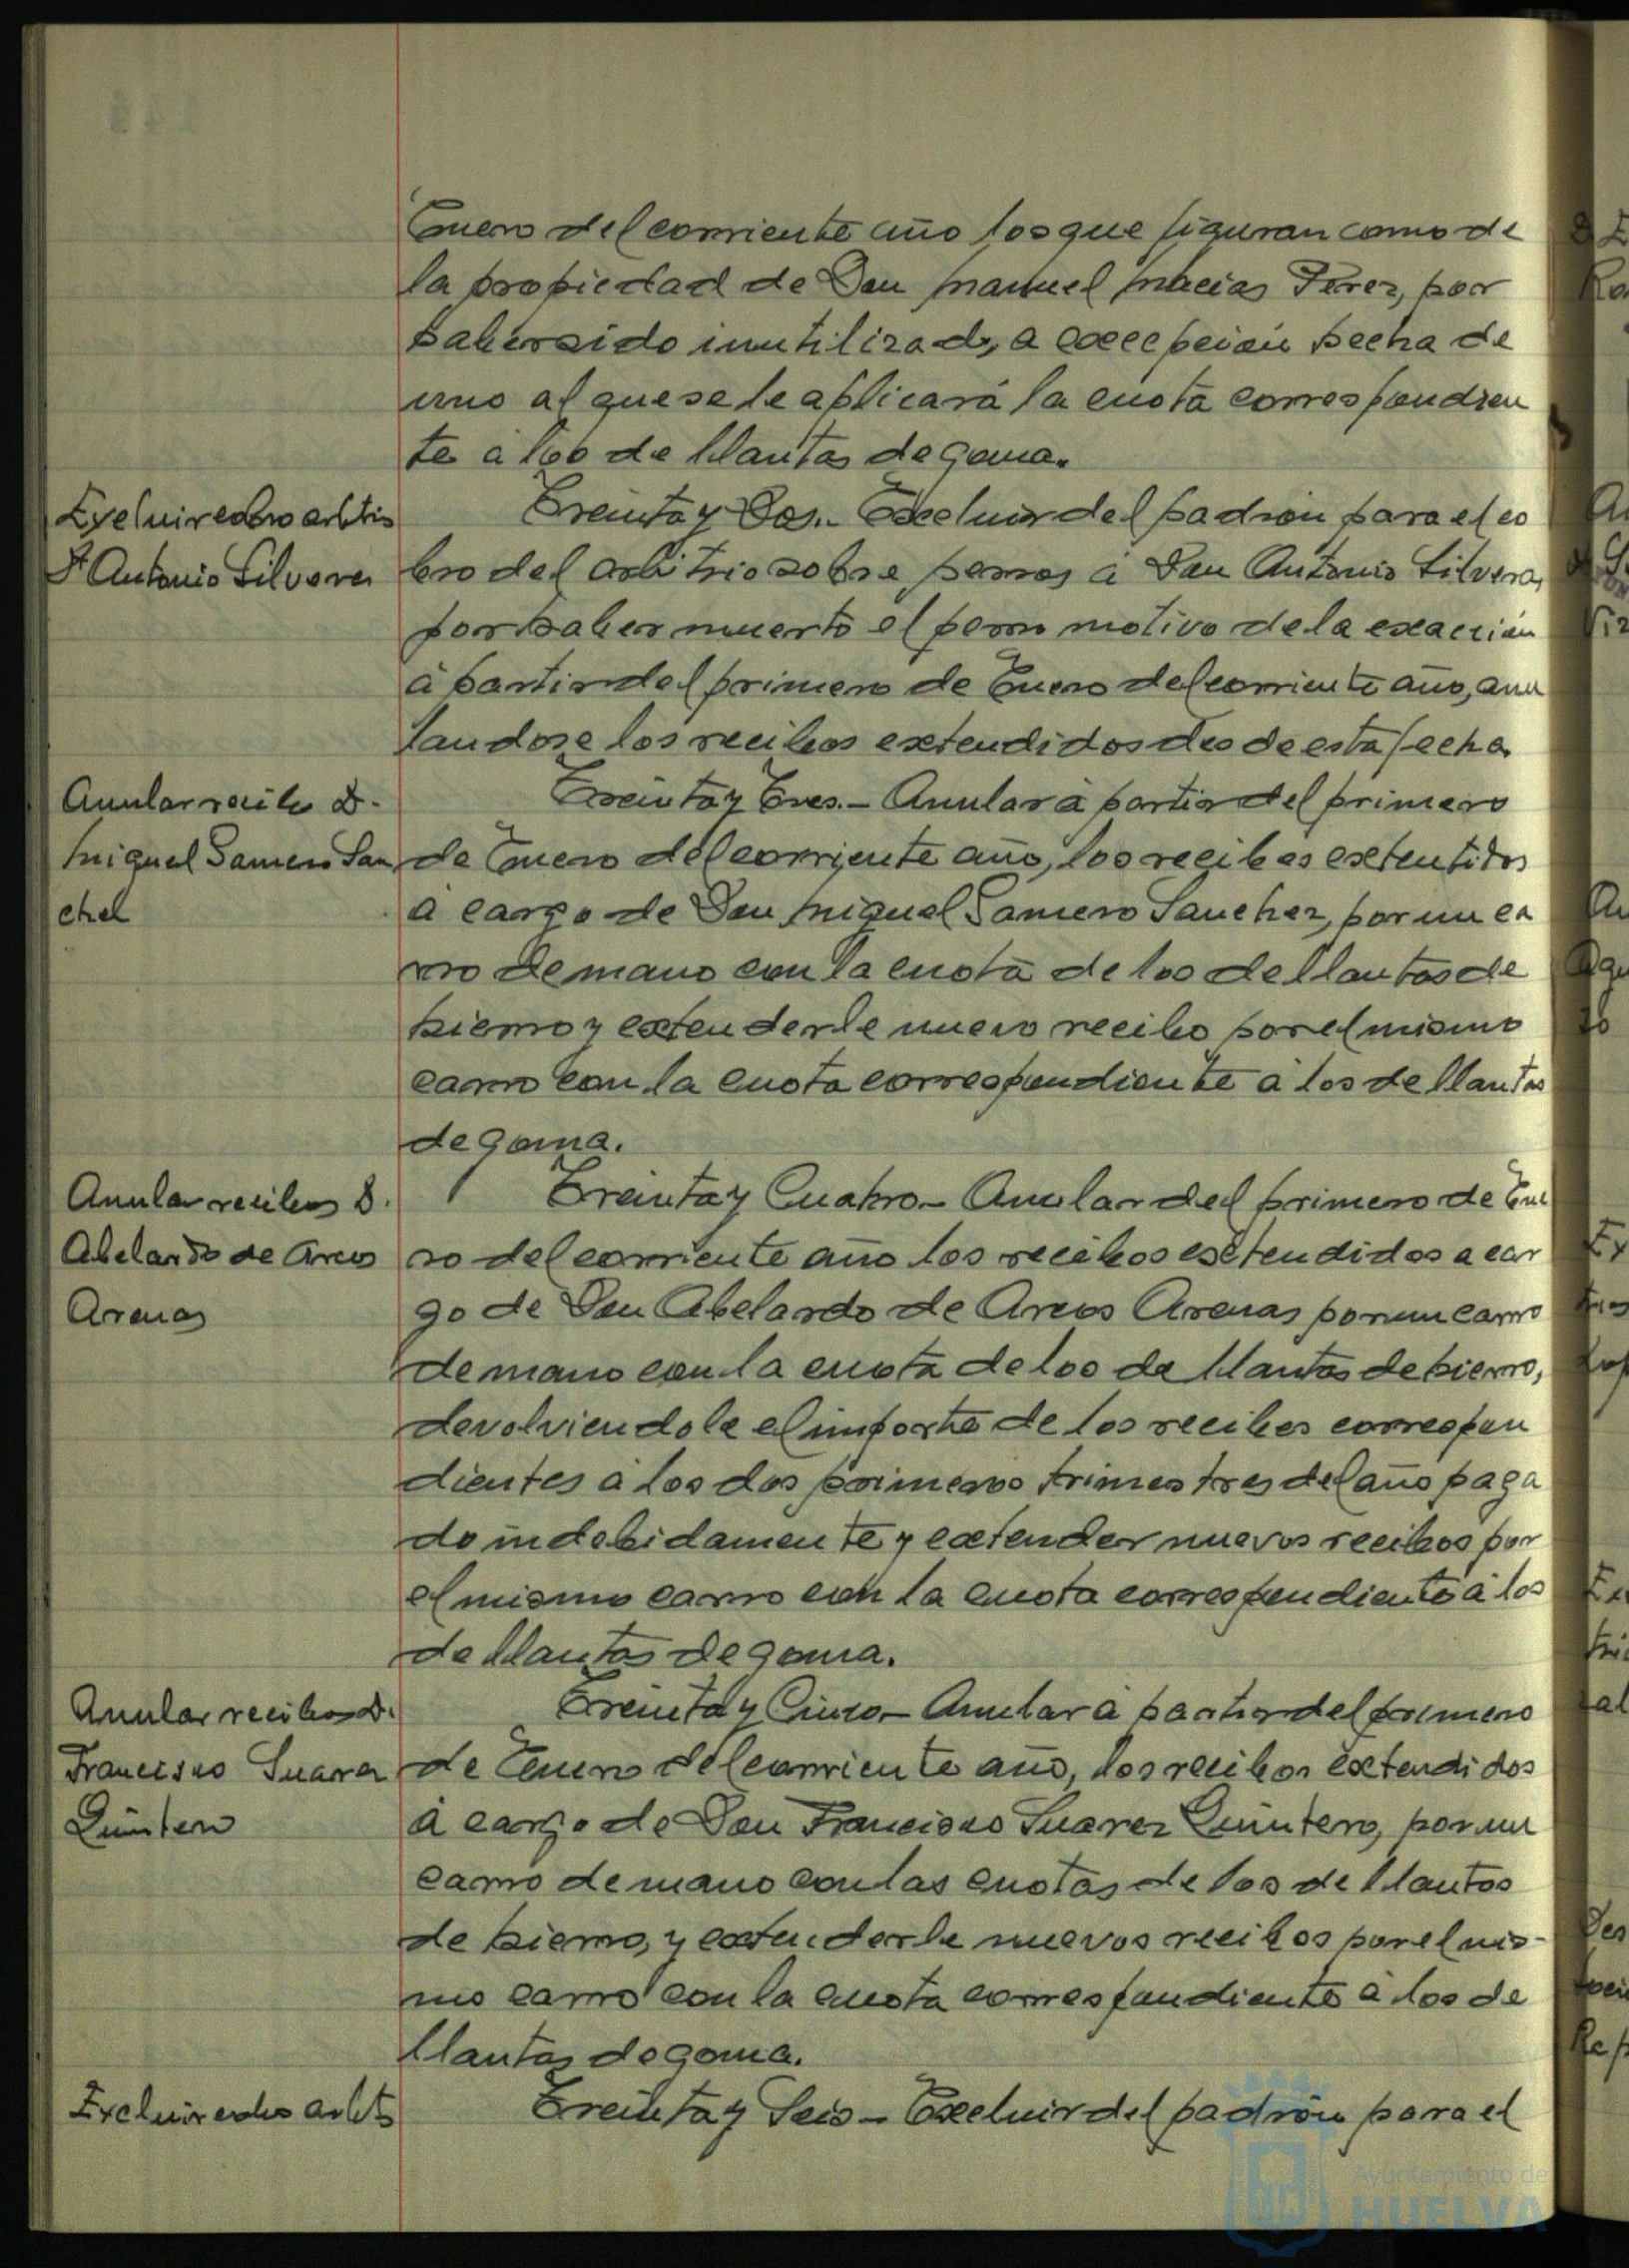 Enero del corriente año los que figuran como de
la propiedad de Don Manuel Macias Perez, por
haber sido inutilizado, a excepción hecha de
uno al que se le aplicará la cuota correspondien
te a los de llantas de goma.
Excluir cobro arbtis
D. Antonio Silvera
Treinta y Dos.- Excluir del padrón para el co
bro del arbitrio sobre perros a Don Antonio Silvera,
por haber muerto el perro motivo de la exacción
a partir del primero de Enero del corriente año, anu
landose los recibos extendidos desde esta fecha
Anular recibo D.
Miguel Samero San
chez
Treinta y Tres.- Anular a partir del primero
de Enero del corriente año, los recibos extentidos
a cargo de Don Miguel Samero Sanchez, por un ca
rro de mano con la cuota de los de llantas de
hierro y extenderle nuevo recibo por el mismo
carro con la cuota correspondiente a los de llantas
de goma.
Anular recibos D.
Abelardo de Arcos
Arenas
Treinta y Cuatro.- Anular del primero de Ene
ro del corriente año los recibos extendidos a car
go de Don Abelardo de Arcos Arenas por un carro
de mano con la cuota de los de llantas de hierro,
devolviendole el importe de los recibos correspon
dientes a los dos primeros trimestres del año paga
do indebidamente y extender nuevos recibos por
el mismo carro con la cuota correspondiente a los
de llantas de goma.
Anular recibos D.
Francisco Suarez
Quintero
Treinta y Cinco.- Anular a partir del primero
de Enero del corriente año, los recibos extendidos
a cargo de Don Francisco Suarez Quintero, por un
carro de mano con las cuotas de los de llantas
de hierro, y extenderle nuevos recibos por el mis-
mo carro con la cuota correspondiente a los de
llantas de goma.
Excluir cobro arbts
Treinta y Seis.- Excluir del padrón para el
Ayuntamiento de
HUELVA